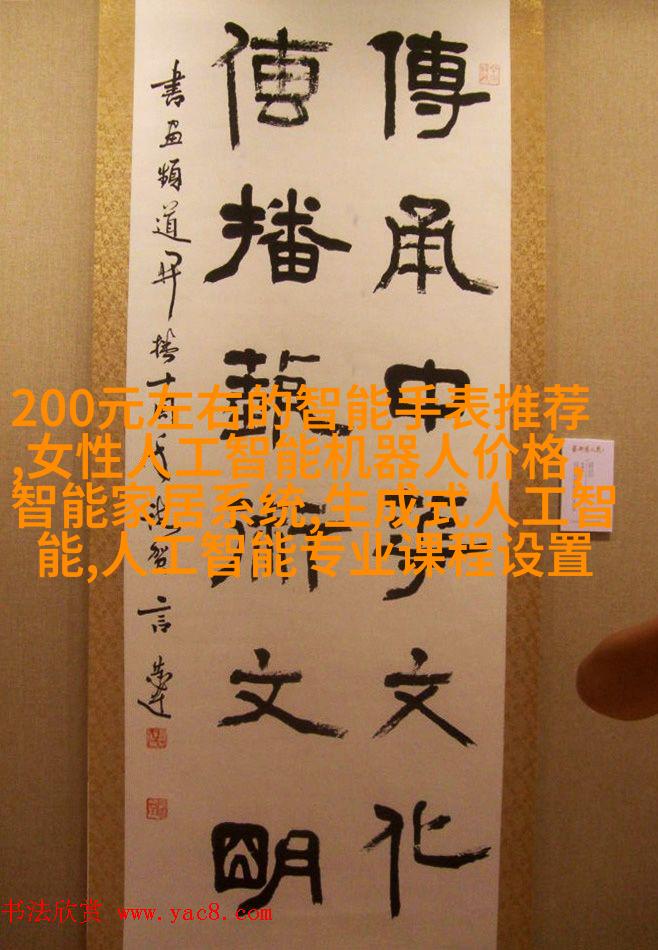 傳承中華文化
傳播藝術文明
書画頻道开播十周年
200元左右的智能手表推荐
,女性人工智能机器人价格,
智能家居系统,生成式人工智
能,人工智能专业课程设置
书法欣赏 www.yac8.com